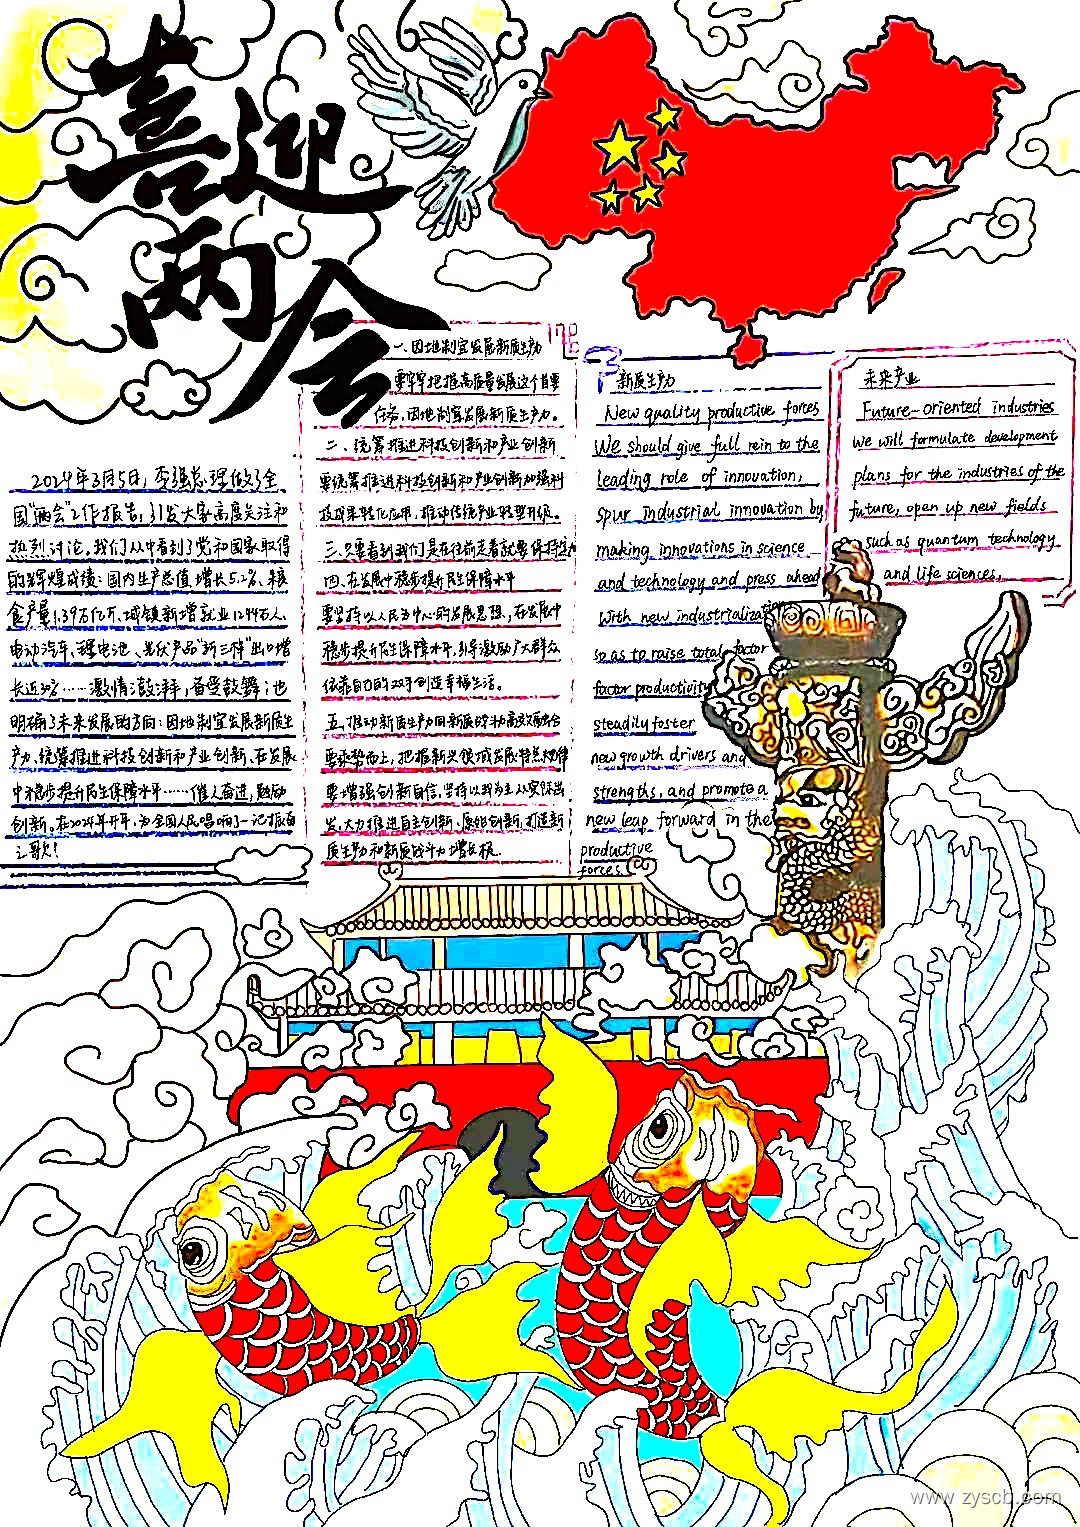 喜迎
两会
2024年3月5日，李强总理做了全
国“两会”工作报告，引发大家高度关注和
热烈讨论，我们从中看到了党和国家取得
的辉煌成绩：国内生产总值增长5.2%、粮
食产量1.39万亿斤、城镇新增就业1244万人、
电动汽车、锂电池、光伏产品“新三样”出口增
长近30%……激情澎湃，备受鼓舞；也
明确了未来发展的方向：因地制宜发展新质生
产力、统筹推进科技创新和产业创新、在发展
中稳步提升民生保障水平……催人奋进，勉励
创新。在2024年开年，为全国人民唱响了一记振奋
之歌！
一、因地制宜发展新质生产力
要牢牢把握高质量发展这个首要
任务，因地制宜发展新质生产力。
二、统筹推进科技创新和产业创新
要统筹推进科技创新和产业创新加强科
技成果转化应用，推动传统产业转型升级。
三、只要看到我们是在往前走着就要保持定力
四、在发展中稳步提升民生保障水平
要坚持以人民为中心的发展思想，在发展中
稳步提升民生保障水平，引导激励广大群众
依靠自己的双手创造幸福生活。
五、推动新质生产力同新质战斗力高效融合
要乘势而上，把握新兴领域发展特点规律
要增强创新自信，坚持以我为主从实际出
发，大力推进自主创新、原始创新，打造新
质生产力和新质战斗力增长极。
新质生产力
New quality productive forces
We should give full rein to the
leading role of innovation,
spur industrial innovation by
making innovations in science
and technology and press ahead
with new industrialization
so as to raise total factor
factor productivity
steadily foster
new growth drivers and
strengths, and promote a
new leap forward in the
productive
forces.
未来产业
Future-oriented industries
We will formulate development
plans for the industries of the
future, open up new fields
such as quantum technology
and life sciences,
www.zyscb.com